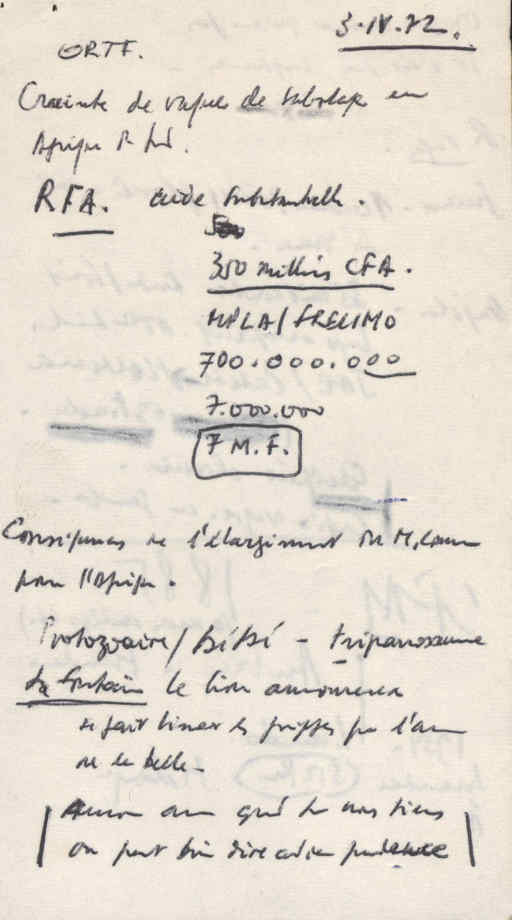 3.IV.72.
ORTF.
Crainte de vague de sabotage en
Afrique
RFA. aide substantielle.
350 millions CFA.
MPLA/FRELIMO
700.000.000
7.000.000
7 M.F.
Conséquences de l'élargissement du M. Comm
pour l'Afrique.
Protozoaire / - tripanossome
La Fontaine le lion amoureux
se fait limer les griffes par l'am
de la belle -
Amour amour quand tu nous tiens
on peut bien dire adieu prudence